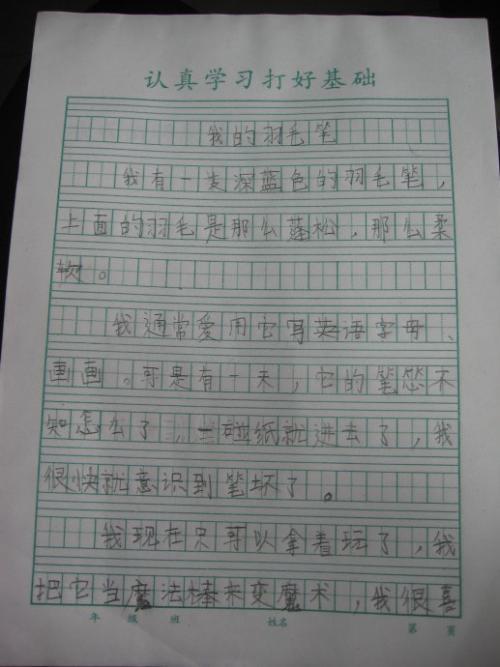 认真学习打好基础
我的羽毛笔
我有一支深蓝色的羽毛笔，
上面的羽毛是那么蓬松，那么柔
软。
我通常爱用它写英语字母、
画画。可是有一天，它的笔芯不
知怎么了，一碰纸就进去了，我
很快就意识到笔坏了。
我现在只可以拿着玩了，我
把它当魔法棒来变魔术，我很喜
年 级 班 姓名
第 页